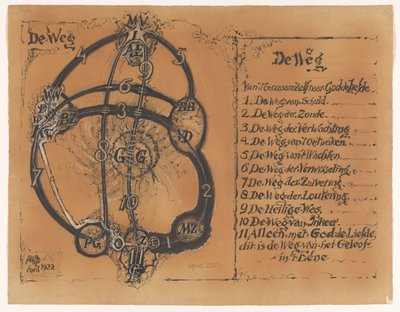 De Weg
MV
4
5
9
6
3
BZ
8
G
G
7
10
2
MZ
PG
0
Z
1
1922
De Weg
1. De Weg van Schuld
2. De Weg der Zonde
3. De Weg der Verwachting
4. De Weg van
5. De Weg van 't Wachten
6. De Weg der Verwisseling
7. De Weg der Zuivering
8. De Weg der Loutering
9. De Heilige Weg
10. De Weg van
11. Alleen met God de Liefde
dit is de Weg van het Geloof
in 't Eéne